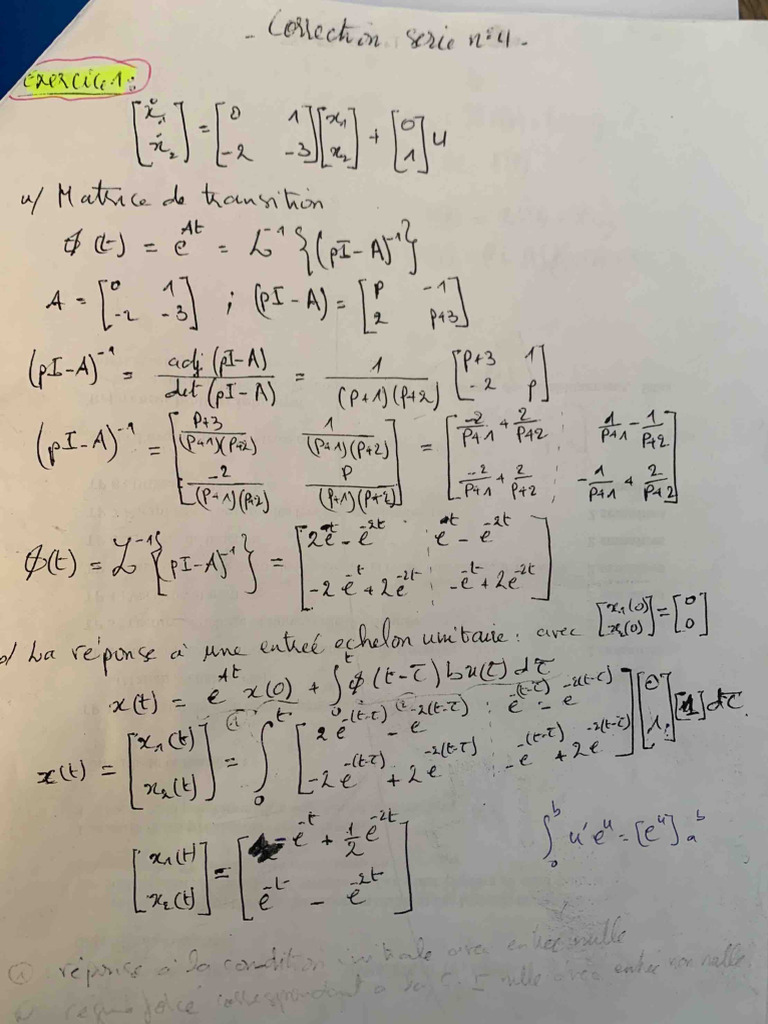 - Correction serie n°4.
exercice 1:
[ẋ₁ ; ẋ₂] = [0 1 ; -2 -3] [x₁ ; x₂] + [0 ; 1] u
a/ Matrice de transition
ϕ(t) = e^{At} = L⁻¹ {(pI-A)⁻¹}
A = [0 1 ; -2 -3] ; (pI-A) = [P -1 ; 2 P+3]
(pI-A)⁻¹ = adj(pI-A) / det(pI-A) = 1 / (P+1)(P+2) [P+3 1 ; -2 P]
(pI-A)⁻¹ = [P+3/(P+1)(P+2) 1/(P+1)(P+2) ; -2/(P+1)(P+2) P/(P+1)(P+2)] = [-2/P+1 + 2/P+2 1/P+1 - 1/P+2 ; -2/P+1 + 2/P+2 -1/P+1 + 2/P+2]
ϕ(t) = L⁻¹ {pI-A)⁻¹} = [2e^{-t} - e^{-2t} e^{-t} - e^{-2t} ; -2e^{-t} + 2e^{-2t} -e^{-t} + 2e^{-2t}]
b/ La réponse à une entreé echelon unitaire : avec [x₁(0) ; x₂(0)] = [0 ; 0]
x(t) = e^{At} x(0) + ∫₀^t ϕ(t-τ) b u(τ) dτ
① ②
x(t) = [x₁(t) ; x₂(t)] = ∫₀^t [2e^{-(t-τ)} - e^{-2(t-τ)} e^{-(t-τ)} - e^{-2(t-τ)} ; -2e^{-(t-τ)} + 2e^{-2(t-τ)} -e^{-(t-τ)} + 2e^{-2(t-τ)}] [0 ; 1] [1] dτ
[x₁(t) ; x₂(t)] = [- e^{-t} + 1/2 e^{-2t} ; e^{-t} - e^{-2t}]
∫₀^b u' e^u = [e^u]_a^b
① réponse à la condition initiale avec entrée nulle
correspondant a la C.I nulle avec entrée non nulle